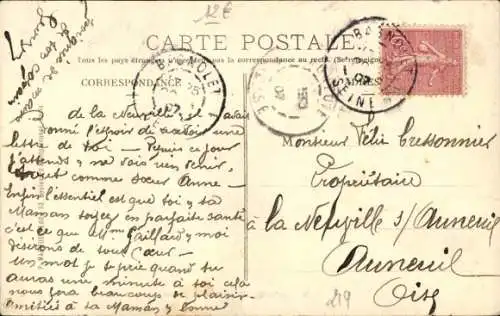 12€
CARTE POSTALE
Tous les pays étrangers n'acceptent pas la correspondance au recto. (Se renseigner
CORRESPONDANCE
de la Neuville et avais
donné l'espoir de avoir une
lettre de toi — Depuis ce jour
j'attends & ne vois rien venir.
tout comme sœur Anne —
Enfin l'essentiel est que toi & ta
Maman soyez en parfaite santé
c'est ce que Mme Gaillard & moi
désirons de tout cœur —
un mot je te prie quand tu
auras une minute à toi cela
nous fera beaucoup de plaisir
Amitiés à ta Maman & bonne
Monsieur Cressonnier
Propriétaire
à la Neuville s/ Auneuil
Auneuil
Oise
219
SEINE